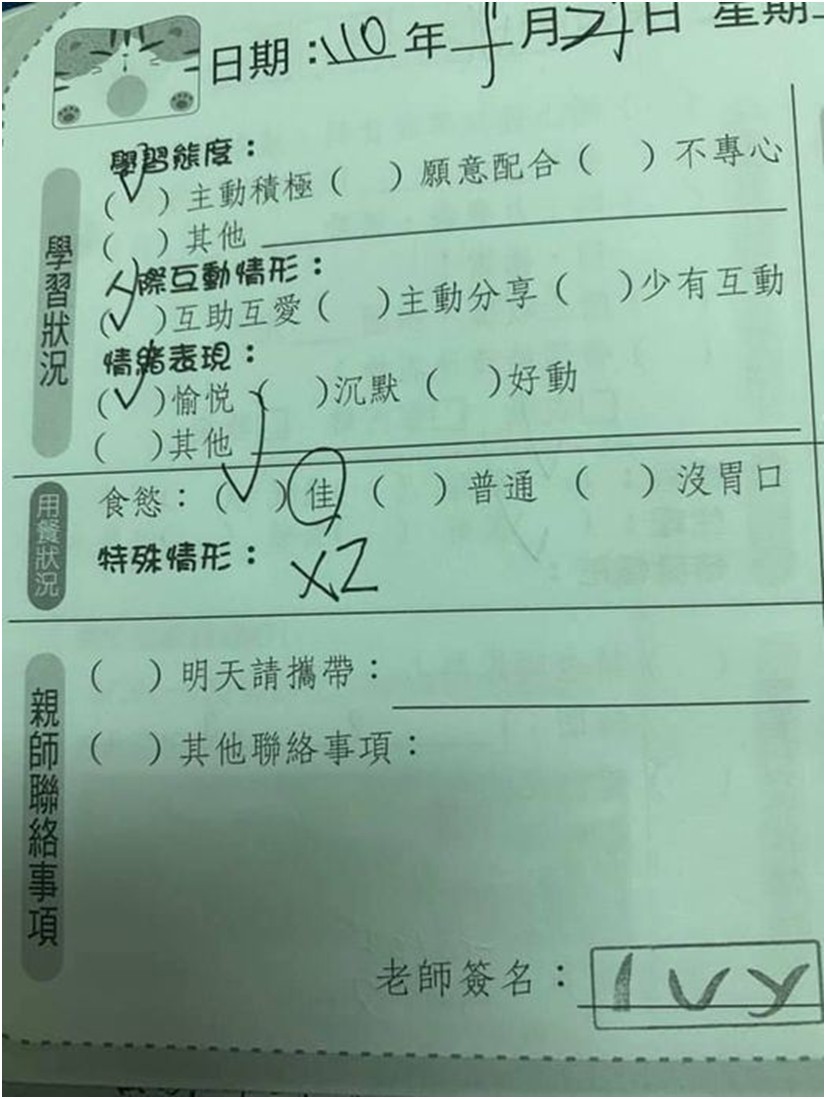 日期：110年 月 日 星期
學習狀況
學習態度：
(✓)主動積極( )願意配合( )不專心
( )其他
人際互動情形：
(✓)互助互愛( )主動分享( )少有互動
情緒表現：
(✓)愉悅( )沉默( )好動
( )其他
用餐狀況
食慾：(✓)佳( )普通( )沒胃口
特殊情形：x2
親師聯絡事項
( )明天請攜帶：
( )其他聯絡事項：
老師簽名：IVY